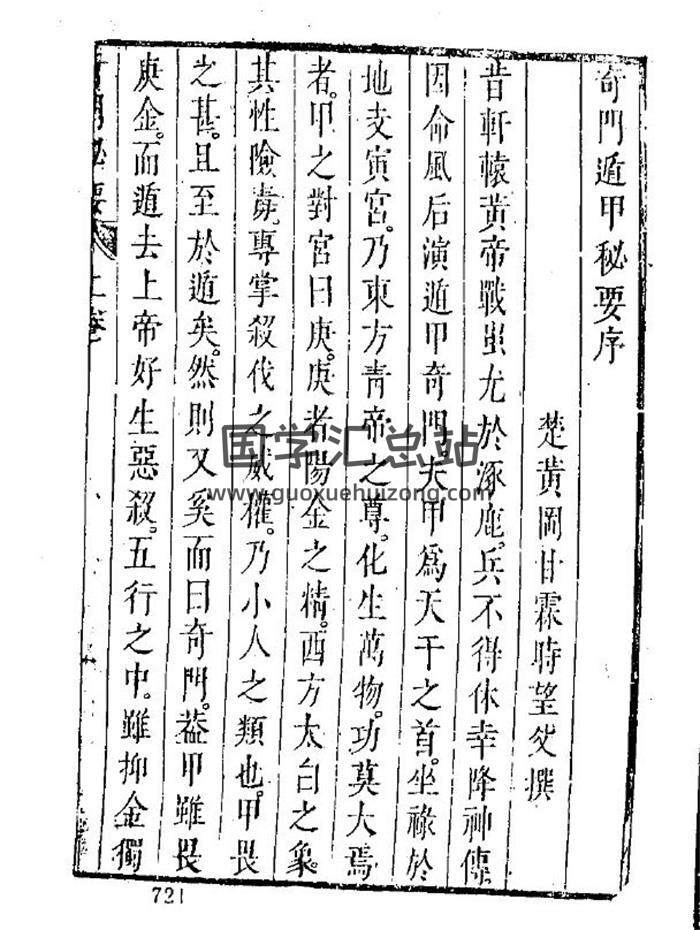 奇門遁甲秘要序
楚黄岡甘霖時望父撰
昔軒轅黄帝戰蚩尤於涿鹿。兵不得休幸降神傳。
因命風后演遁甲奇門。夫甲爲天干之首。坐祿於
地支寅宫。乃東方青帝之尊。化生萬物。功莫大焉
者。甲之對宫曰庚。庚者陽金之精。西方太白之象。
其性險毒。專掌殺伐之威權。乃小人之類也。甲畏
之甚。且至於遁矣。然則又奚而曰奇門。葢甲雖畏
庚金。而遁去上帝好生惡殺。五行之中。雖抑金獨
秘要 上卷
721
国学汇总站
www.guoxuehuizong.com